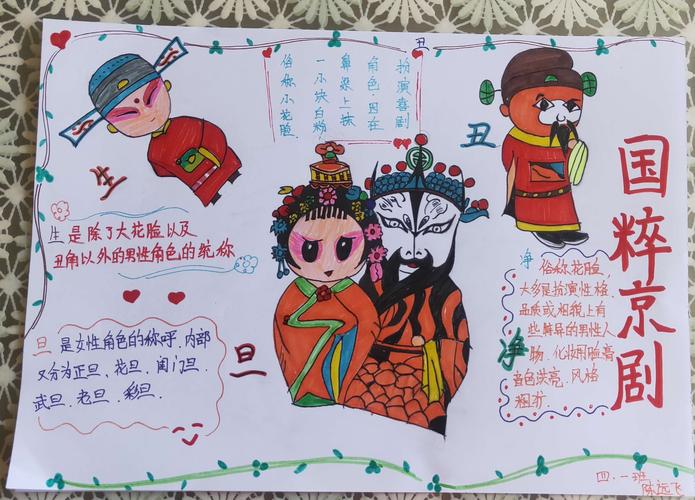 国粹京剧
丑
扮演喜剧
角色.因在
鼻梁上抹
一小块白粉.
俗称小花脸.
生
丑
生是除了大花脸以及
丑角以外的男性角色的统称
旦
旦是女性角色的称呼.内部
又分为正旦、花旦、闺门旦.
武旦、老旦、彩旦.
净
净 俗称花脸,
大多是扮演性格,
品质或相貌上有
些异的男性人
化妆用脸
音色洪亮.风格
粗犷.
四.一班
陈远飞